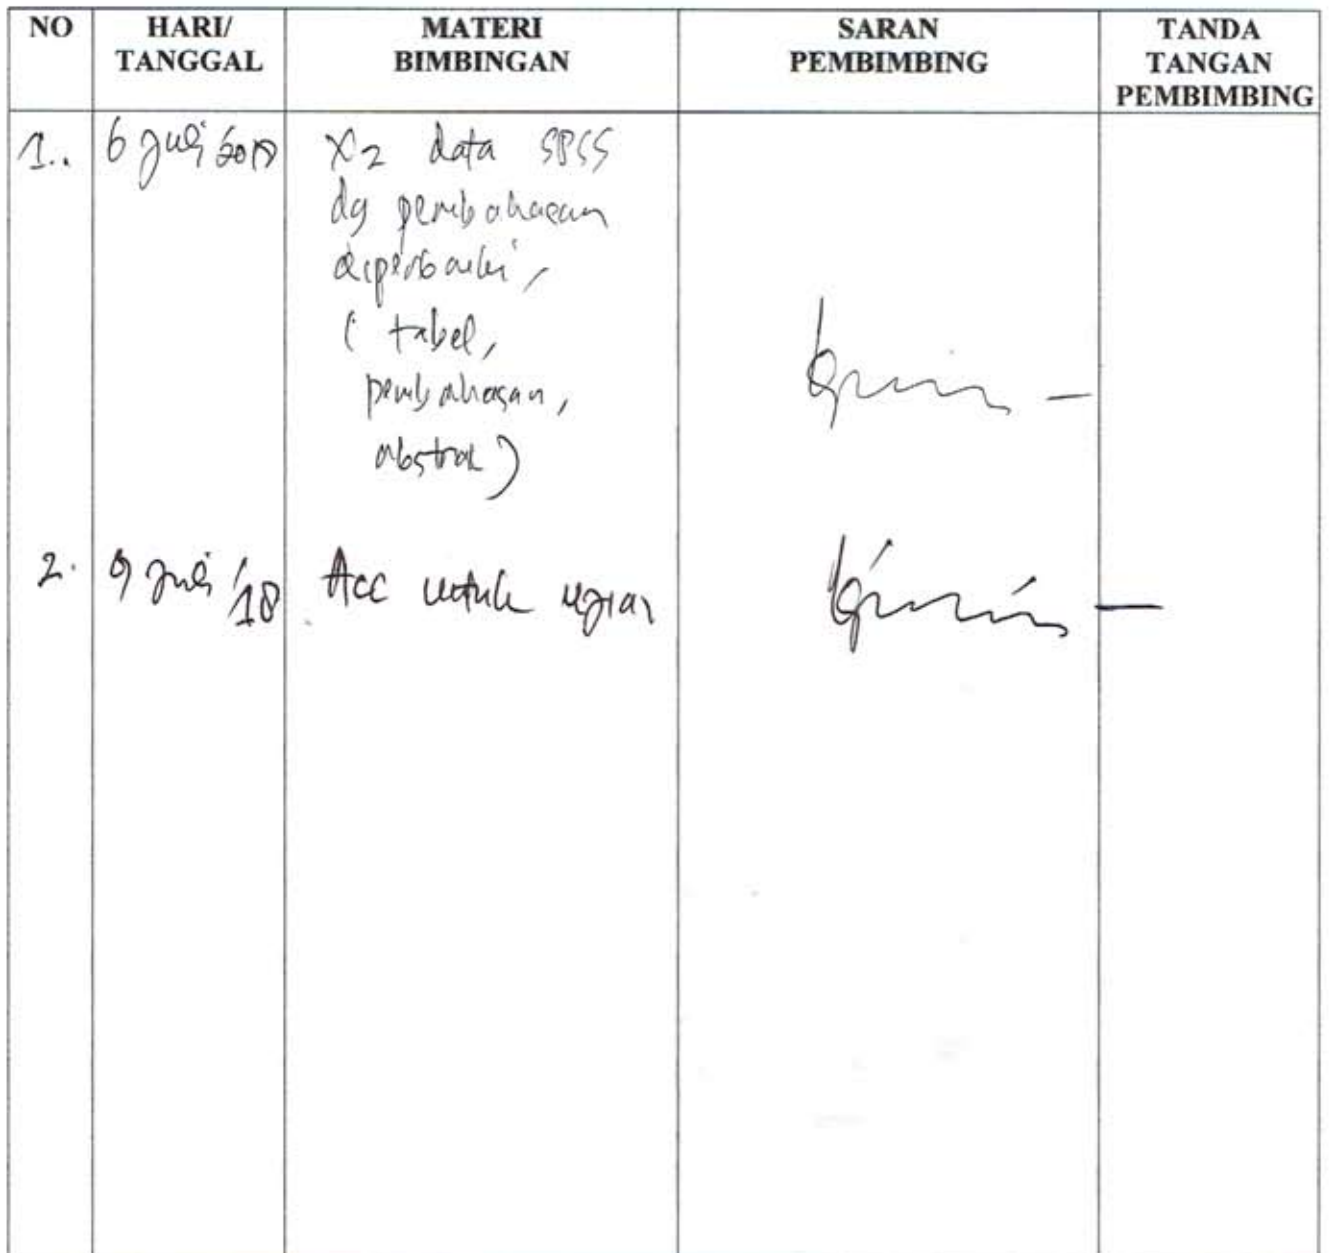 NO HARI/ MATERI SARAN TANDA
TANGGAL BIMBINGAN PEMBIMBING TANGAN
PEMBIMBING
1.. 6 Juli 2018 X2 data SPSS
dg pembahasan
diperbaiki,
( tabel,
pembahasan,
abstrak)
2. 9 Juli '18 Acc untuk ujian